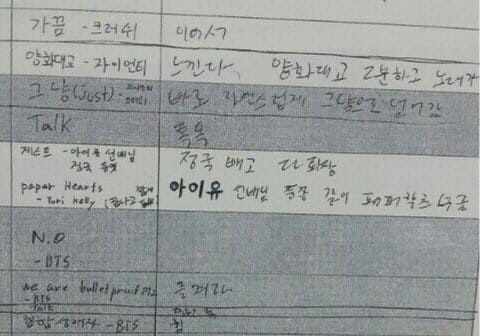 가끔 - 크러쉬 이어서
양화대교 - 자이언티 느낀다, 양화대교 2분하고 노래가
그냥(Just) - 자이언티 크러쉬 바로 자연스럽게 그냥으로 넘어감
Talk 톡톡
게스트 - 아이유 선배님 정국 빼고 다 퇴장
정국 등장
paper Hearts 아이유 선배님 등장 같이 페퍼할츠 부름
- Tori Kelly
N.O
- BTS
we are bulletproof pt2 즐겨라
- BTS
Talk
- BTS 힘